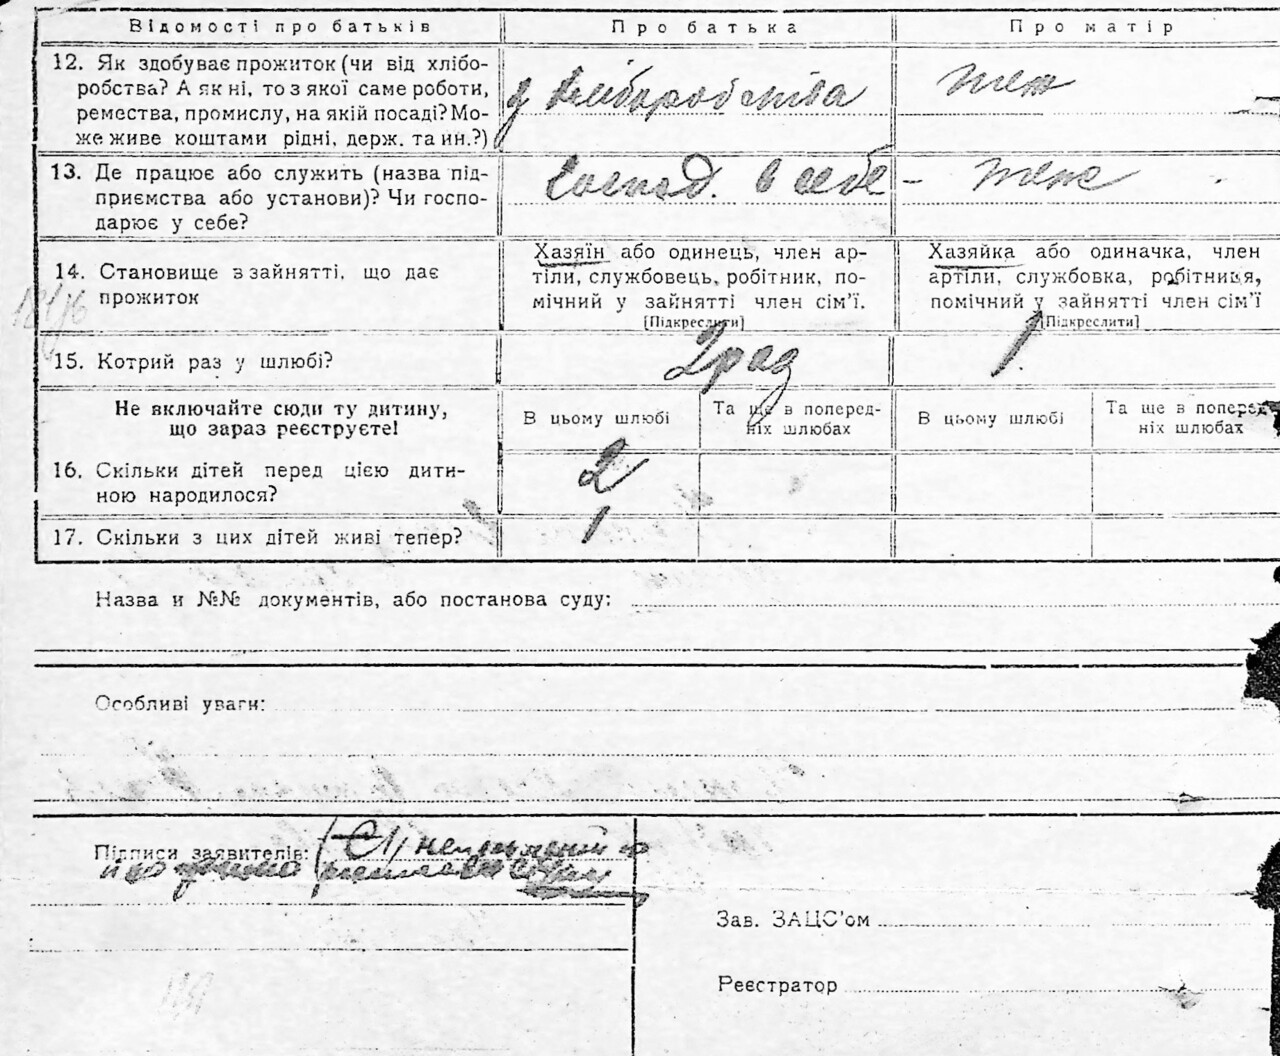 Відомості про батьків Про батька Про матір
12. Як здобуває прожиток (чи від хлібо-
робства? А як ні, то з якої саме роботи,
ремества, промислу, на якій посаді? Мо-
же живе коштами рідні, держ. та ин.?)
з хліборобства теж
13. Де працює або служить (назва під-
приємства або установи)? Чи госпо-
дарює у себе?
господ. в себе – теж
14. Становище в зайнятті, що дає
прожиток
Хазяїн або одинець, член ар-
тіли, службовець, робітник, по-
мічний у зайнятті член сім'ї.
[Підкреслити]
Хазяйка або одиначка, член
артіли, службовка, робітниця,
помічний у зайнятті член сім'ї
[Підкреслити]
15. Котрий раз у шлюбі? 2 раз 1
Не включайте сюди ту дитину,
що зараз реєструєте!
В цьому шлюбі
Та ще в поперед-
ніх шлюбах
В цьому шлюбі
Та ще в поперед-
ніх шлюбах
16. Скільки дітей перед цією дити-
ною народилося?
2
17. Скільки з цих дітей живі тепер? 1
Назва и №№ документів, або постанова суду:
Особливі уваги:
Підписи заявителів:
Зав. ЗАЦС'ом
Реєстратор